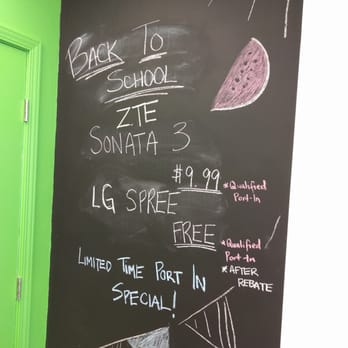 BACK TO
SCHOOL
ZTE
SONATA 3
$9.99 *Qualified
Port-In
LG SPREE
FREE *Qualified
Port-In
*AFTER
REBATE
LIMITED TIME PORT IN
SPECIAL!